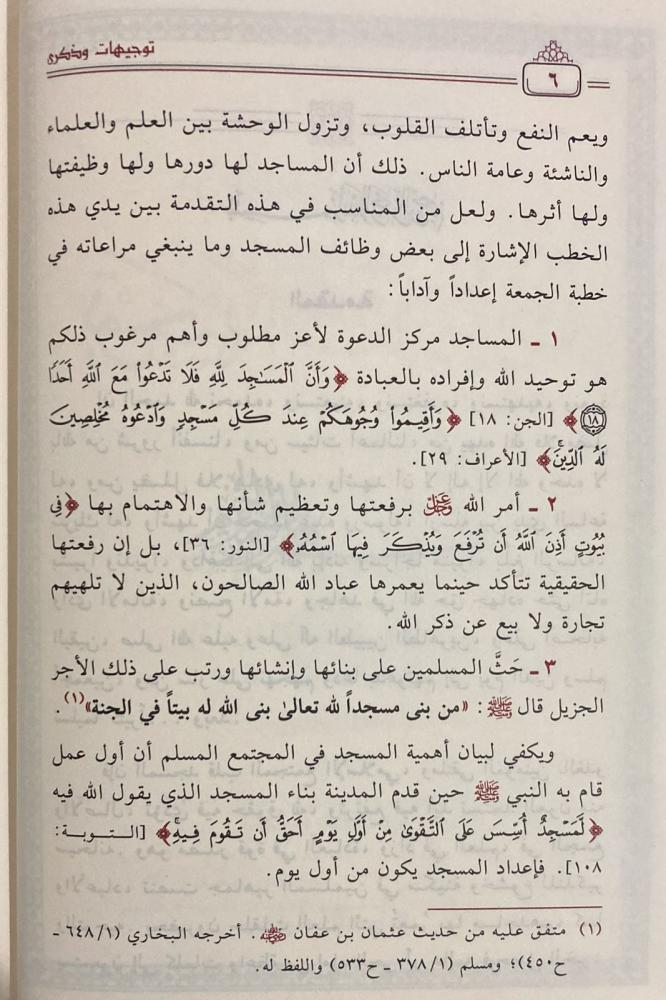 توجيهات وذكرى
٦
ويعم النفع وتأتلف القلوب، وتزول الوحشة بين العلم والعلماء
والناشئة وعامة الناس. ذلك أن المساجد لها دورها ولها وظيفتها
ولها أثرها. ولعل من المناسب في هذه التقدمة بين يدي هذه
الخطب الإشارة إلى بعض وظائف المسجد وما ينبغي مراعاته في
خطبة الجمعة إعداداً وآداباً:
١ ـ المساجد مركز الدعوة لأعز مطلوب وأهم مرغوب ذلكم
هو توحيد الله وإفراده بالعبادة ﴿وَأَنَّ الْمَسَاجِدَ لِلَّهِ فَلَا تَدْعُوا مَعَ اللَّهِ أَحَدًا
﴿١٨﴾﴾ [الجن: ١٨] ﴿وَأَقِيمُوا وُجُوهَكُمْ عِندَ كُلِّ مَسْجِدٍ وَادْعُوهُ مُخْلِصِينَ
لَهُ الدِّينَ﴾ [الأعراف: ٢٩].
٢ ـ أمر الله عَزَّ وَجَلَّ برفعتها وتعظيم شأنها والاهتمام بها ﴿فِي
بُيُوتٍ أَذِنَ اللَّهُ أَن تُرْفَعَ وَيُذْكَرَ فِيهَا اسْمُهُ﴾ [النور: ٣٦]، بل إن رفعتها
الحقيقية تتأكد حينما يعمرها عباد الله الصالحون، الذين لا تلهيهم
تجارة ولا بيع عن ذكر الله.
٣ ـ حَثَّ المسلمين على بنائها وإنشائها ورتب على ذلك الأجر
الجزيل قال ﷺ: «من بنى مسجداً لله تعالىٰ بنى الله له بيتاً في الجنة»(١).
ويكفي لبيان أهمية المسجد في المجتمع المسلم أن أول عمل
قام به النبي ﷺ حين قدم المدينة بناء المسجد الذي يقول الله فيه
﴿لَّمَسْجِدٌ أُسِّسَ عَلَى التَّقْوَىٰ مِنْ أَوَّلِ يَوْمٍ أَحَقُّ أَن تَقُومَ فِيهِ﴾ [التوبة:
١٠٨]. فإعداد المسجد يكون من أول يوم.
(١) متفق عليه من حديث عثمان بن عفان رضي الله عنه. أخرجه البخاري (١/٦٤٨ ـ
ح٤٥٠)؛ ومسلم (١/٣٧٨ ـ ح٥٣٣) واللفظ له.